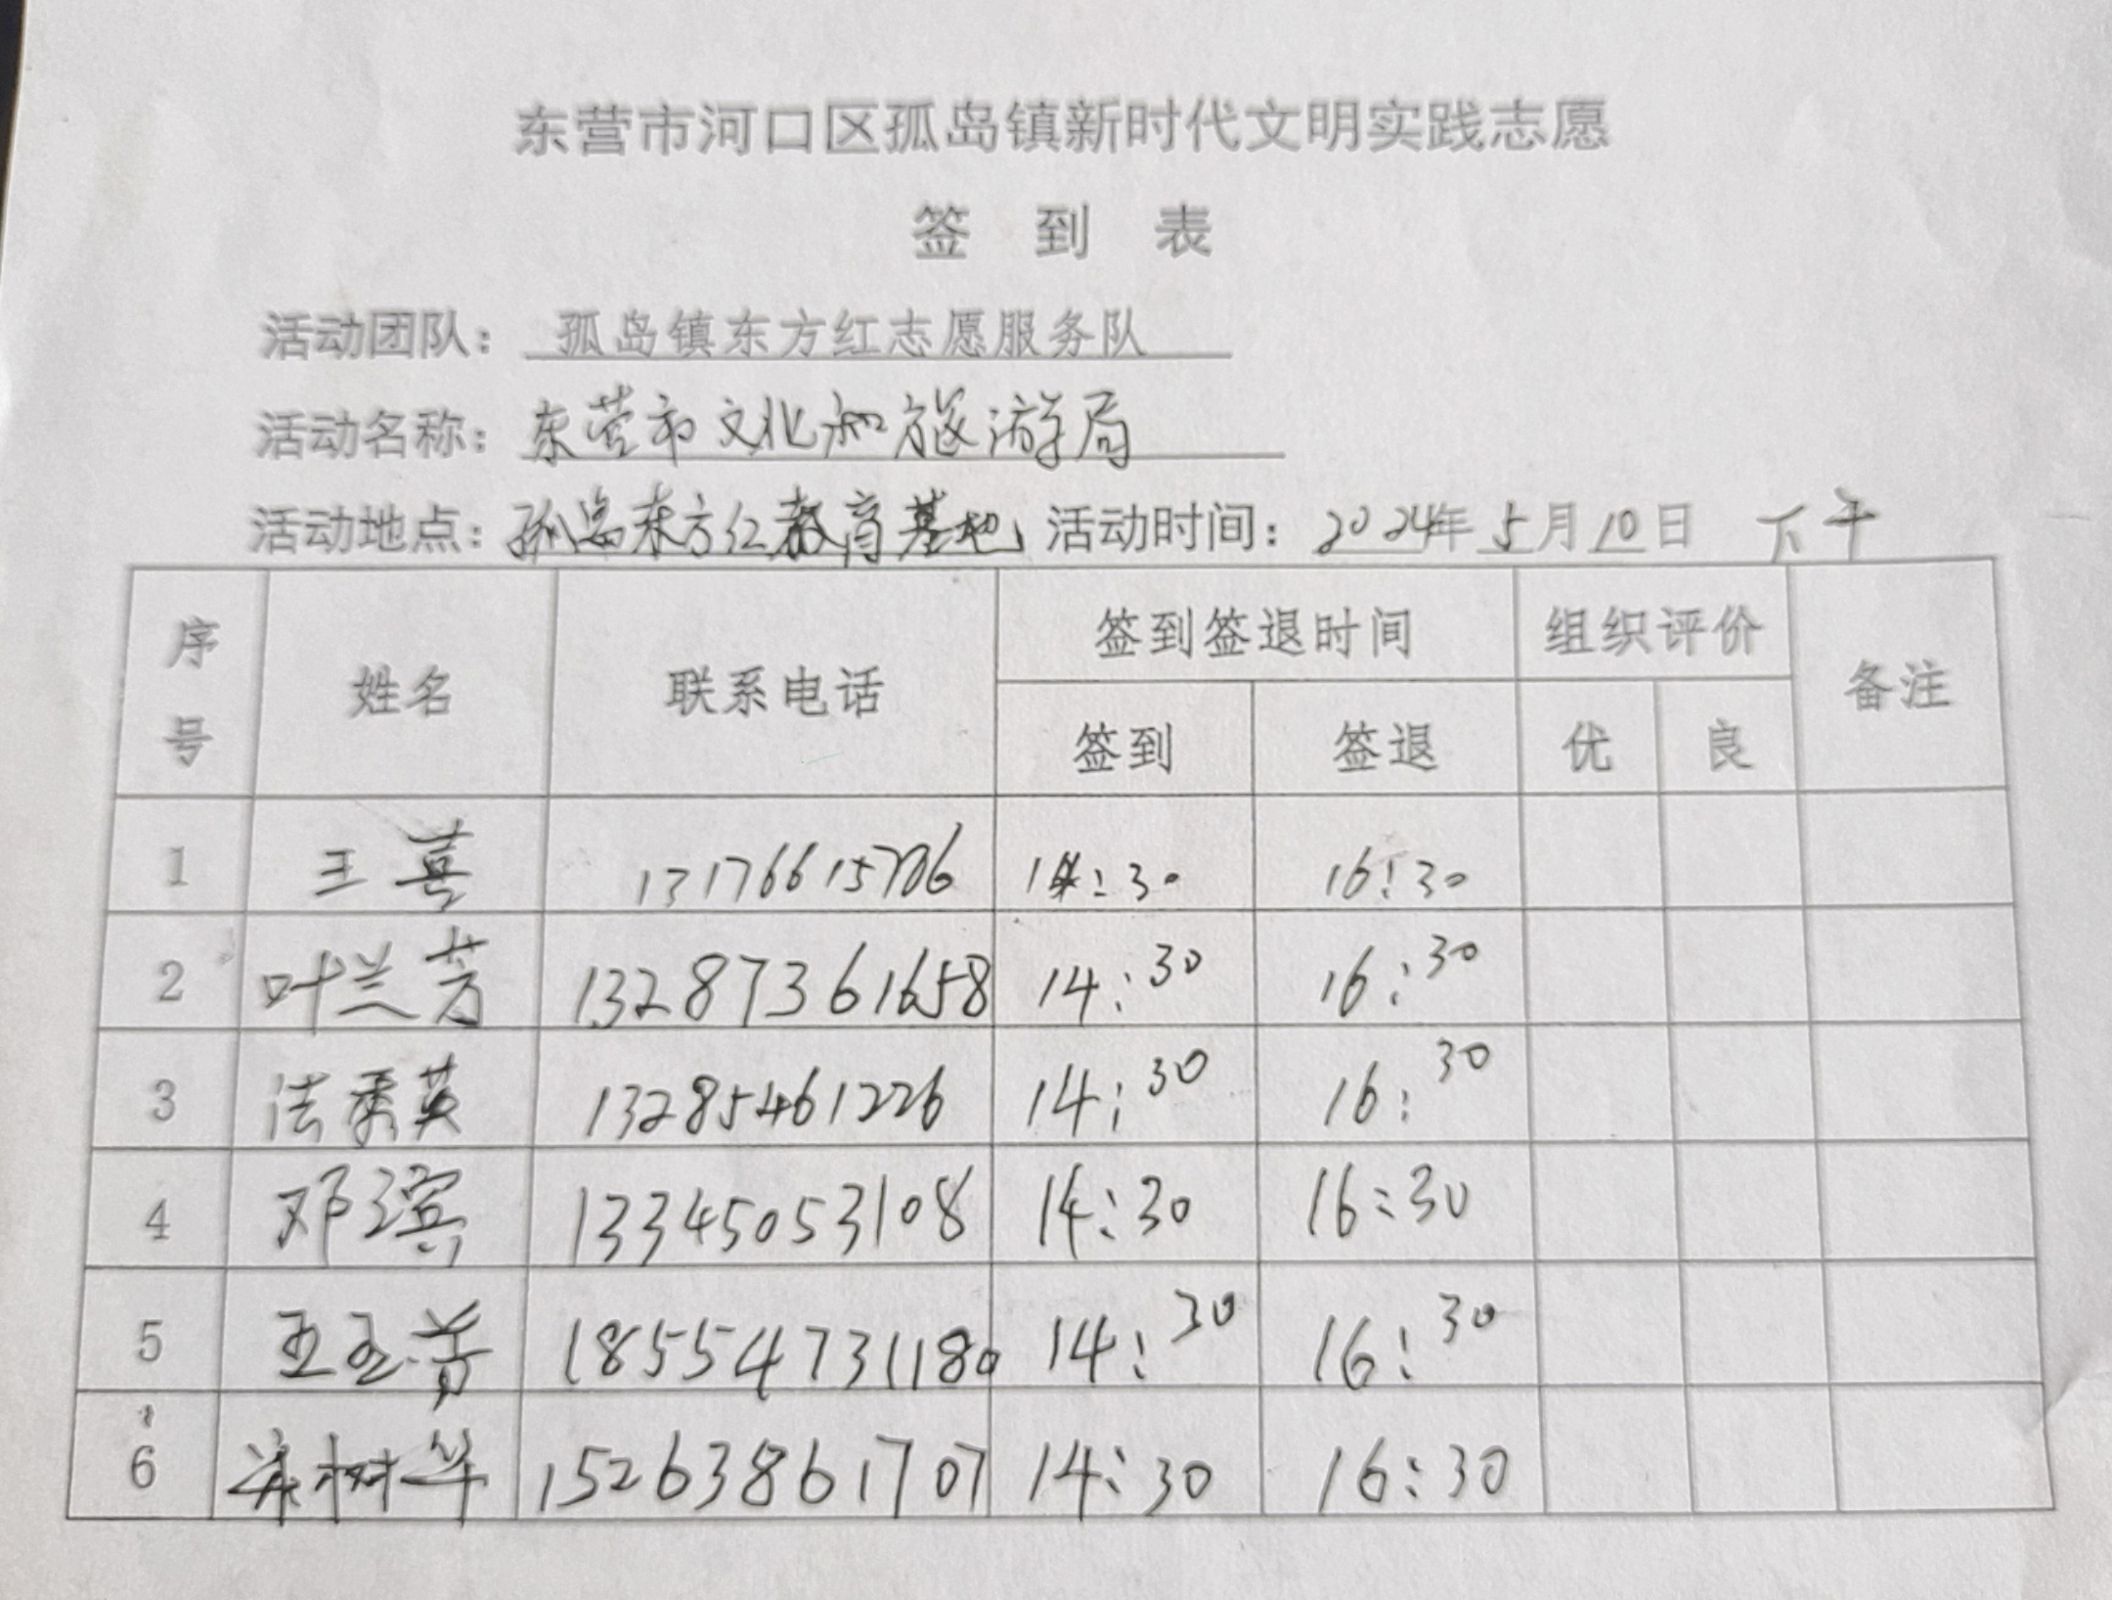 东营市河口区孤岛镇新时代文明实践志愿
签 到 表
活动团队： 孤岛镇东方红志愿服务队
活动名称： 东营市文化和旅游局
活动地点：孤岛东方红教育基地 活动时间： 2024年 5月 10日 下午
序号 姓名 联系电话 签到签退时间 组织评价 备注
签到 签退 优 良
1 王喜 13176615706 14:30 16:30
2 叶兰芳 13287361658 14:30 16:30
3 法秀英 13285461226 14:30 16:30
4 邓滨 13345053108 14:30 16:30
5 王玉 18554731180 14:30 16:30
6 树华 15263861707 14:30 16:30